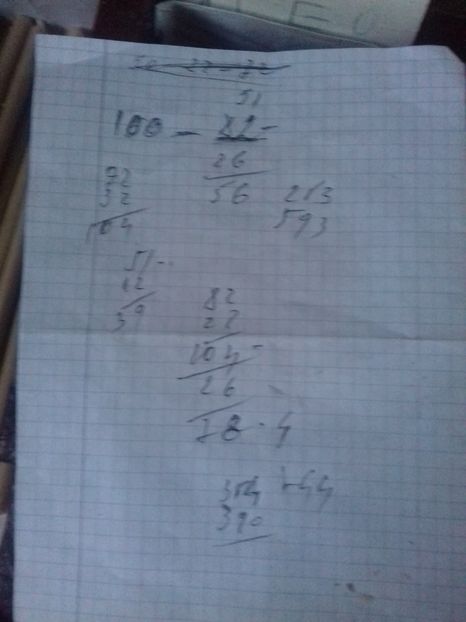 51
100 - 82 -
26
56
72
32
104
213
593
51 -
12
39
82
22
104 -
26
78 · 4
354 + 44
390